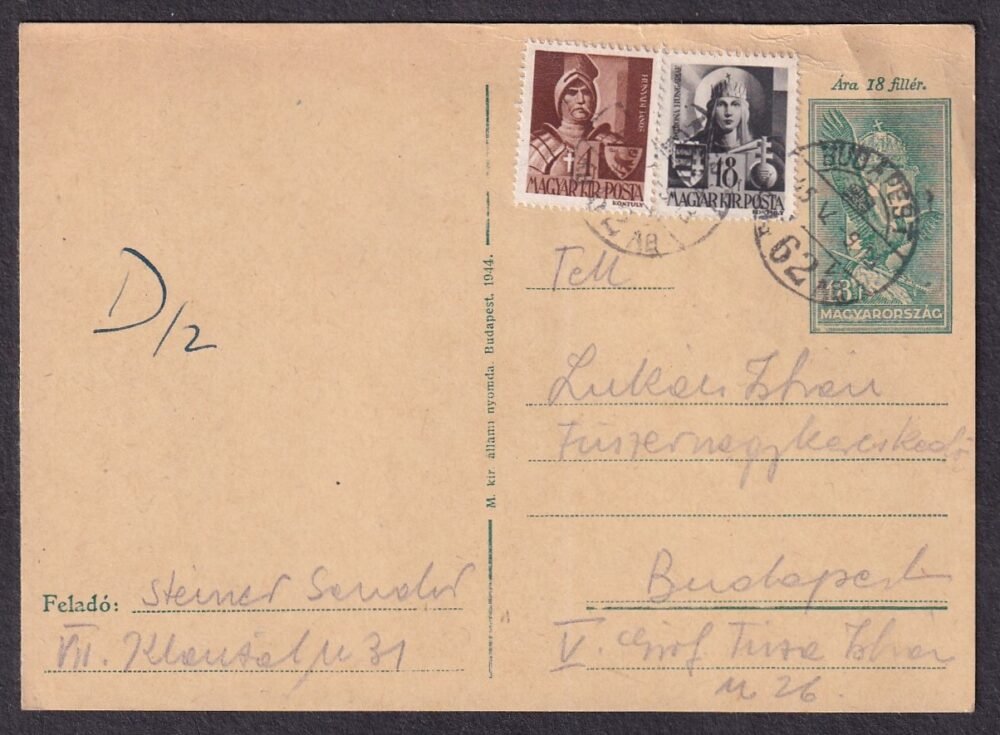 Ára 18 fillér.
HUNYADI JÁNOS
4
MAGYAR KIR. POSTA
KONTULY
PATRONA HUNGARIAE
18
MAGYAR KIR. POSTA
BUDAPEST
62
MAGYARORSZÁG
D/2
M. kir. állami nyomda. Budapest, 1944.
Tek
Lukács István
Fűszernagykereskedő
Budapest
V. Gróf Tisza István
u 26.
Feladó: Steiner Sándor
VII. Klauzál u 31